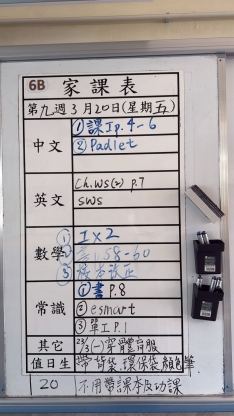 6B 家課表
第九週 3月20日(星期五)
中文 ①課工p.4-6
②Padlet
英文 Ch.WS(2) p.7
SWS
數學 ① I×2
② p.58-60
③ 校本改正
常識 ①書P.8
②esmart
③單I P.1
其它 23/3(一)穿體育服
值日生 帶 袋、環保袋、顏色筆
20 不用帶課本及功課